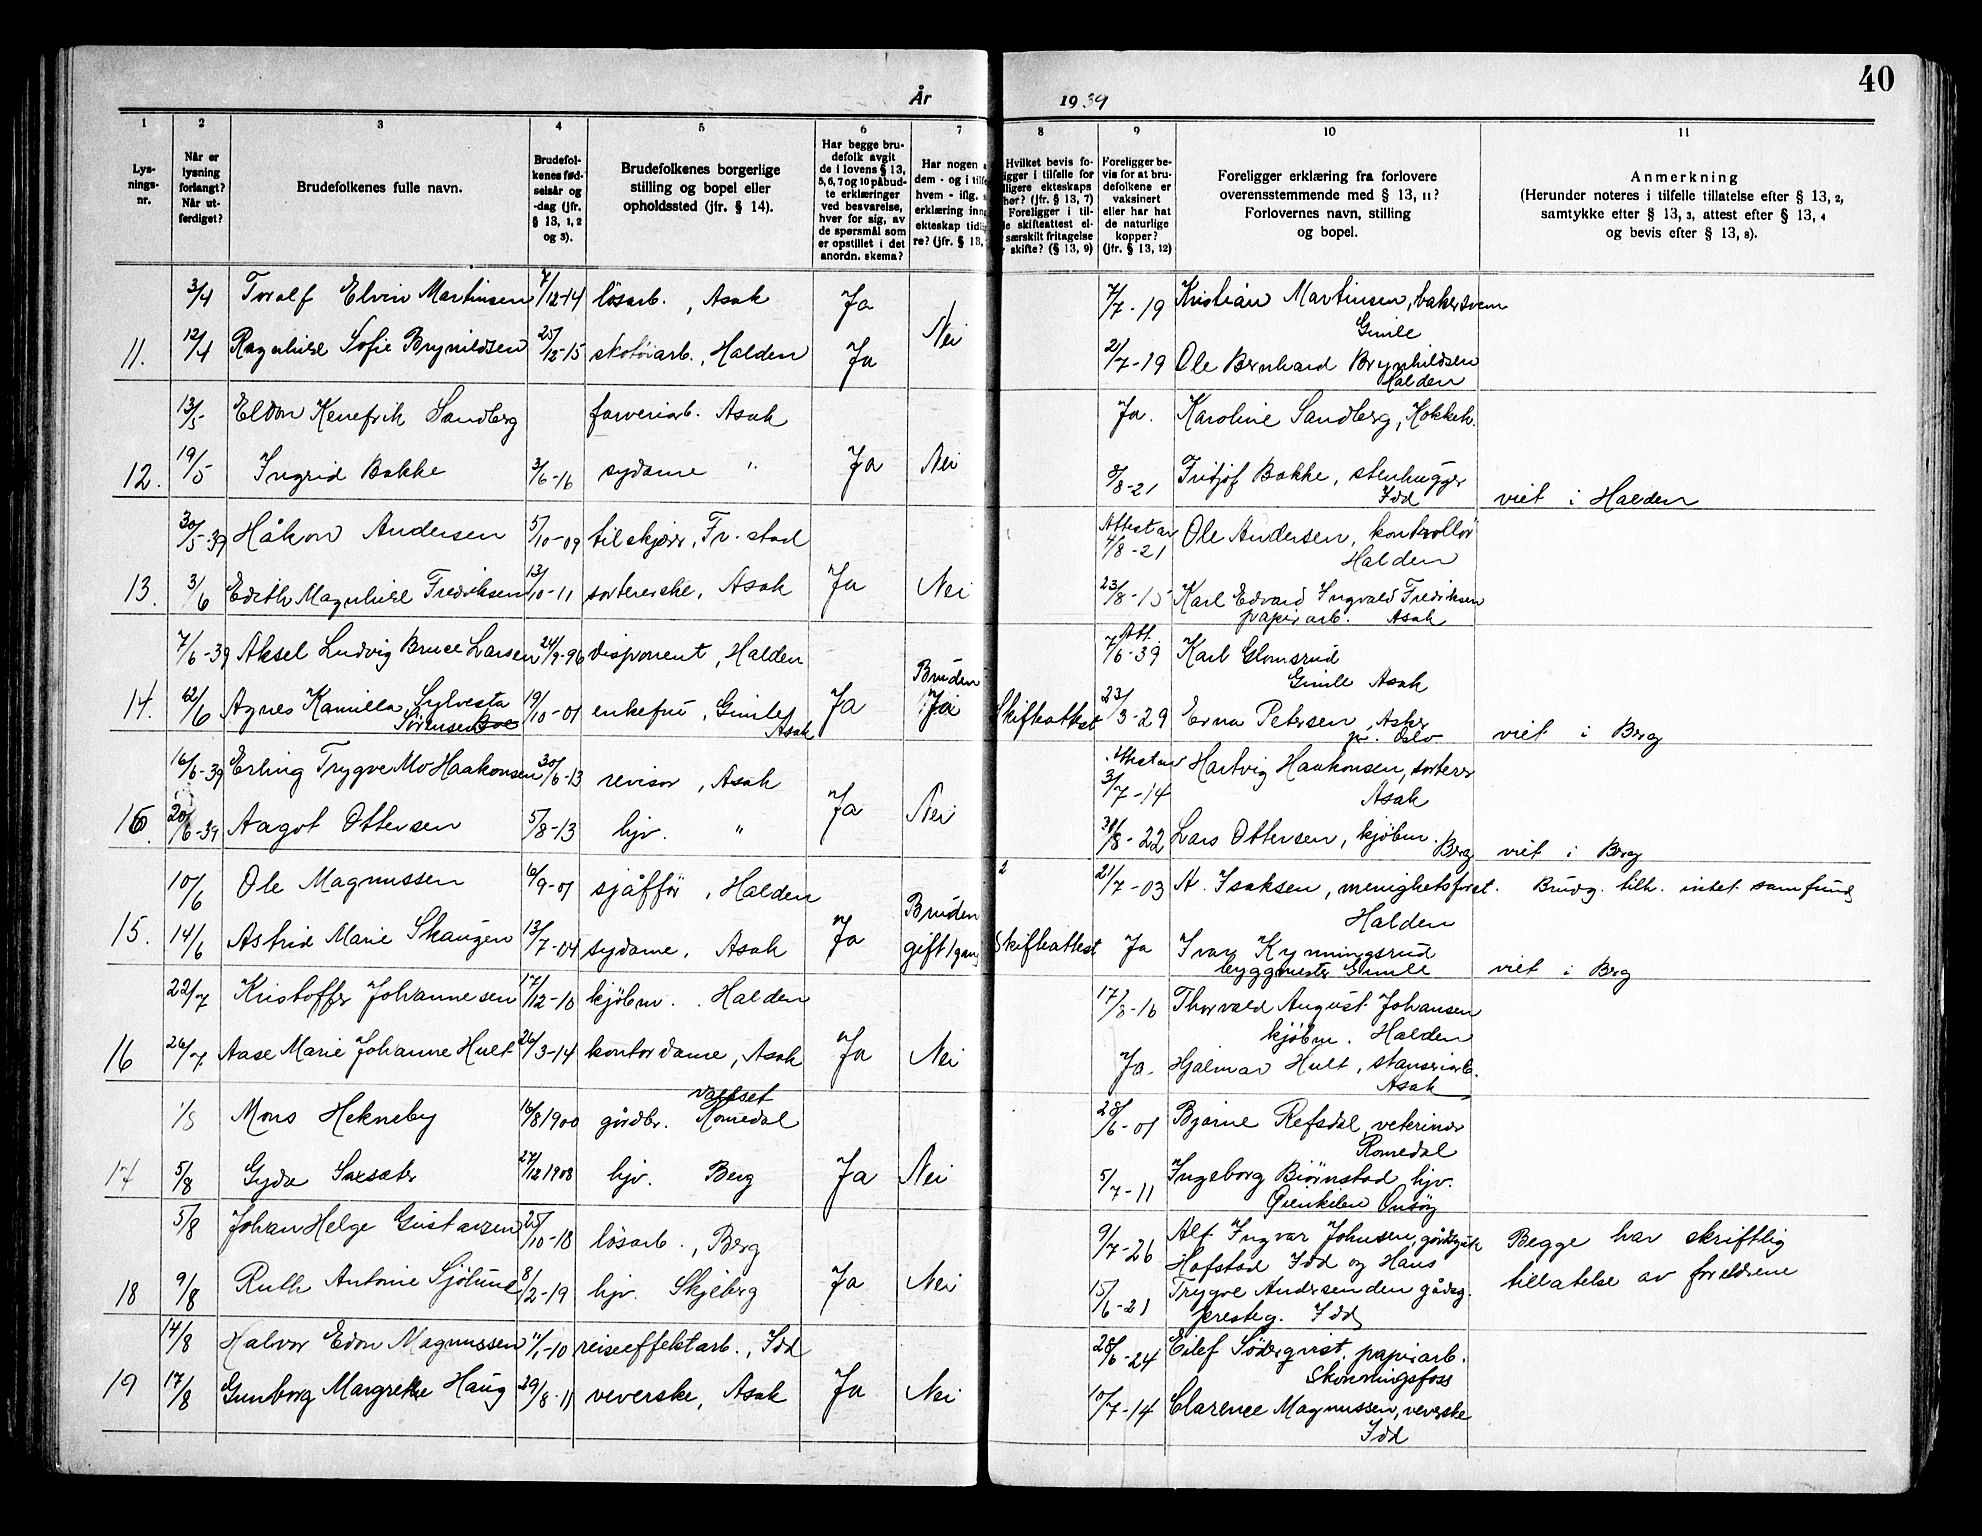 40
År 1939
1 2 3 4 5 6 7 8 9 10 11
Lys-
nings-
nr.
Når er
lysning
forlangt?
Når ut-
ferdiget?
Brudefolkenes fulle navn.
Brudefol-
kenes fød-
selsår og
-dag (jfr.
§ 13, 1, 2
og 3).
Brudefolkenes borgerlige
stilling og bopel eller
opholdssted (jfr. § 14).
Har begge bru-
defolk avgit
de i lovens § 13,
5, 6, 7 og 10 påbud-
te erklæringer
ved besvarelse,
hver for sig, av
de spørsmål som
er opstillet i det
anordn. skema?
Har nogen a
dem - og i tilfe
hvem - iflg. s
erklæring inng
ekteskap tidli
re? (jfr. § 13,
Hvilket bevis fo-
ligger i tilfelle for
ligere ekteskaps
hør? (jfr. § 13, 7)
Foreligger i til-
le skifteattest el-
særskilt fritagelse
skifte? (§ 13, 9)
Foreligger be-
vis for at bru-
defolkene er
vaksinert
eller har hat
de naturlige
kopper?
(jfr. § 13, 12)
Foreligger erklæring fra forlovere
overensstemmende med § 13, 11?
Forlovernes navn, stilling
og bopel.
Anmerkning
(Herunder noteres i tilfelle tillatelse efter § 13, 2,
samtykke efter § 13, 3, attest efter § 13, 4
og bevis efter § 13, 8).
3/4 Toralf Elvin Martinsen 7/12-14 løsarb., Asak Ja 7/7-19 Kristian Martinsen, bakersvem
Gimle
11. 12/4 Ragnhild Sofie Brynildsen 25/12-15 skotøiarb., Halden Ja Nei 21/7-19 Ole Bernhard Brynhildsen
Halden
13/5 Eldon Kenefrik Sandberg farveriarb. Asak Ja. Karoline Sandberg, Kokkeh.
12. 19/5 Ingrid Bakke 3/6-16 sydame " Ja Nei 8/8-21 Fritjof Bakke, stenhugger
Idd viet i Halden
30/5-39 Håkon Andersen 5/10-09 tilskjærer, Fr.stad Attest av
4/8-21 Ole Andersen, kontrollør
Halden
13. 3/6 Edith Magnhild Fredriksen 13/10-11 sorterерske, Asak Ja Nei 23/8-15 Karl Edvard Ingvald Fredriksen
papirarb. Asak
7/6-39 Aksel Ludvig Bruce Larsen 24/9-96 disponent, Halden Att.
7/6-39 Karl Glomsrud
Gimle Asak
14. 12/6 Agnes Kamilla Sylvesta
Sørensen 19/10-01 enkefru, Gimle
Asak Ja Bruden
Ja Skifteattest 23/3-29 Erna Petersen, Asker
pr. Oslo viet i Berg
16/6-39 Erling Trygve Mo Haakonsen 30/6-13 revisor, Asak Attest av
3/7-14 Hartvig Haakonsen, sorterer
Asak
16. 20/6-39 Aagot Ottersen 5/8-13 hjv. " Ja Nei 31/8-22 Lars Ottersen, kjøbm.
Berg viet i Berg
10/6 Ole Magnussen 6/9-01 sjåffør, Halden 2 21/7-03 A. Isaksen, menighetsforst.
Halden Brudg. tilh. intet samfund
15. 14/6 Astrid Marie Skaugen 13/7-04 sydame, Asak Ja Bruden
gift 1 gang Skifteattest Ja Ivar Kynningsrud
byggmester Gimle viet i Berg
22/7 Kristoffer Johannesen 17/12-10 kjøbm. Halden 17/8-16 Thorvald August Johansen
kjøbm. Halden
16 26/7 Aase Marie Johanne Hult 26/3-14 kontordame, Asak Ja Nei Ja. Hjalmar Hult, stanseriarb.
Asak
1/8 Mons Hekneby 16/8 1900 gårdbr. Vallset
Romedal 28/6-01 Bjarne Refsdal, veterinær
Romedal
17 5/8 Gyda Sæsæter 27/12 1908 hjv. Berg Ja Nei 5/7-11 Ingeborg Biørnstad hjv.
Onsøy
5/8 Johan Helge Gustavsen 25/10-18 løsarb., Berg 9/7-26 Alf Ingvar Johnsen, gårdbruk
Hafstad Idd og Hans Begge har skriftlig
18 9/8 Ruth Antonie Sjølund 8/2-19 hjv. Skjeberg Ja Nei 15/6-21 Trygve Andersen den gådeg.
presteg. Idd tillatelse av foreldrene
14/8 Halvor Edon Magnussen 11/1-10 reiseeffektarb., Idd 28/6-24 Eilef Söderqvist, papirarb.
Skonningsfoss
19 17/8 Gunborg Margrethe Haug 29/8-11 veverske, Asak Ja Nei 10/7-14 Clarence Magnussen, veverske
Idd